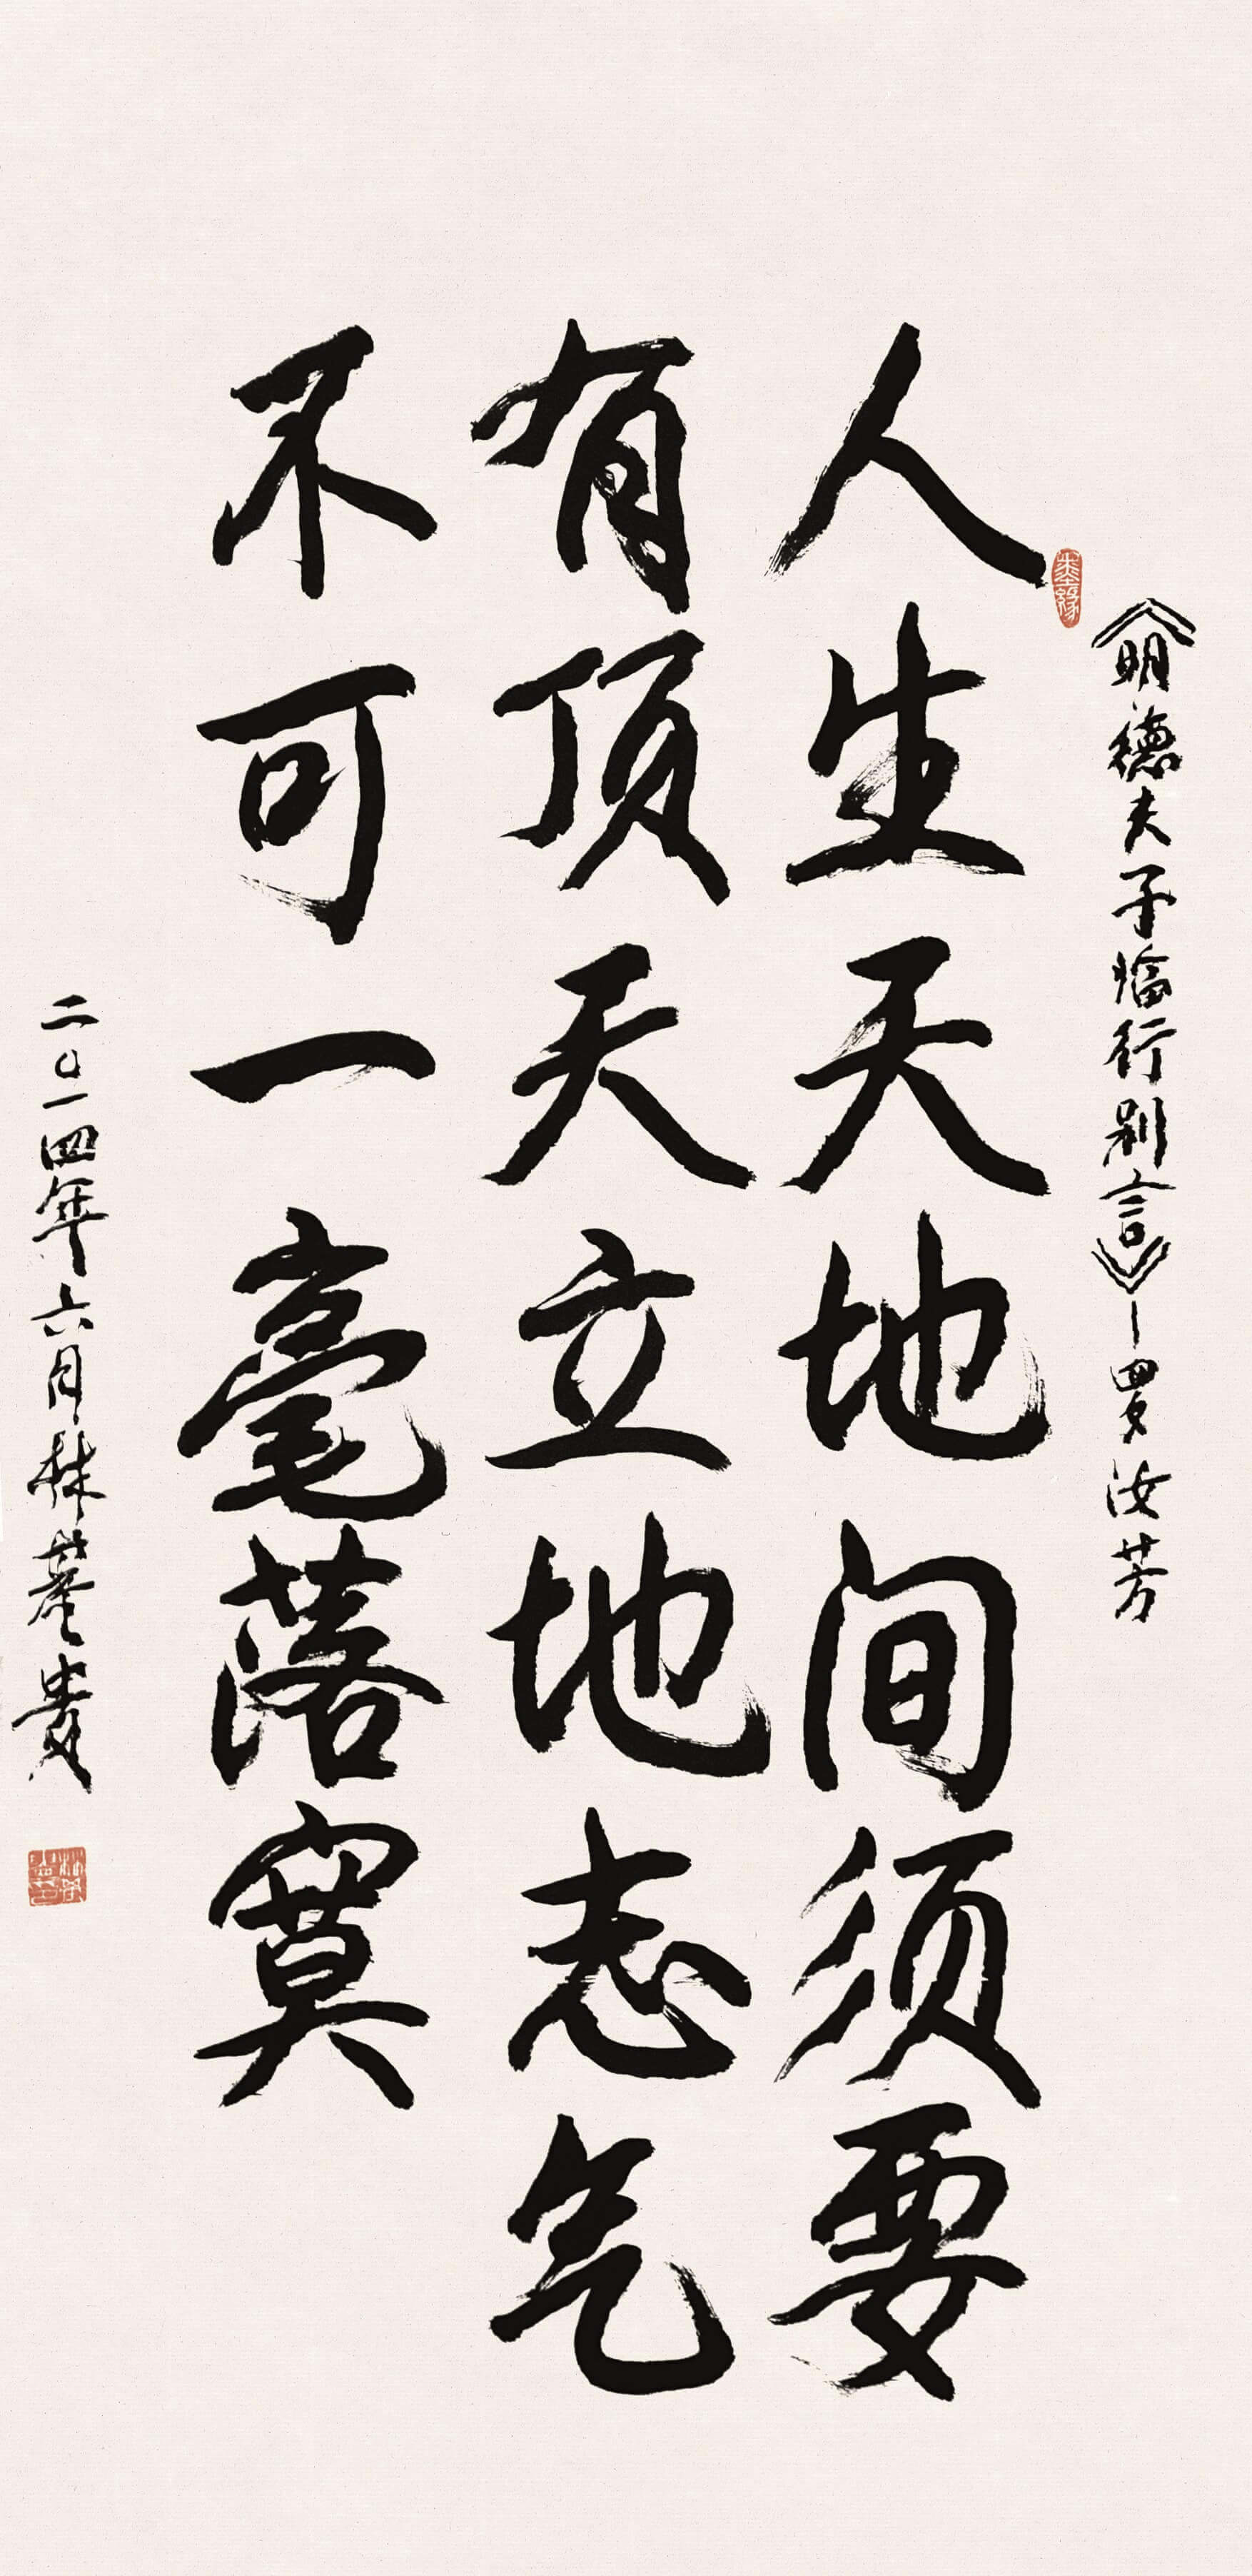 《明德夫子临行别言》—罗汝芳
人生天地间须要
有顶天立地志气
不可一毫落寞
二〇一四年六月林荣贵
墨缘